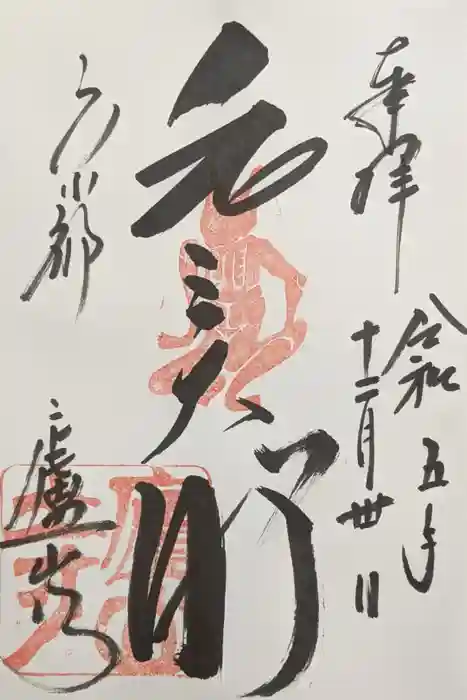 奉拝
令和五年
十二月丗日
元三大師
京都
廬山寺